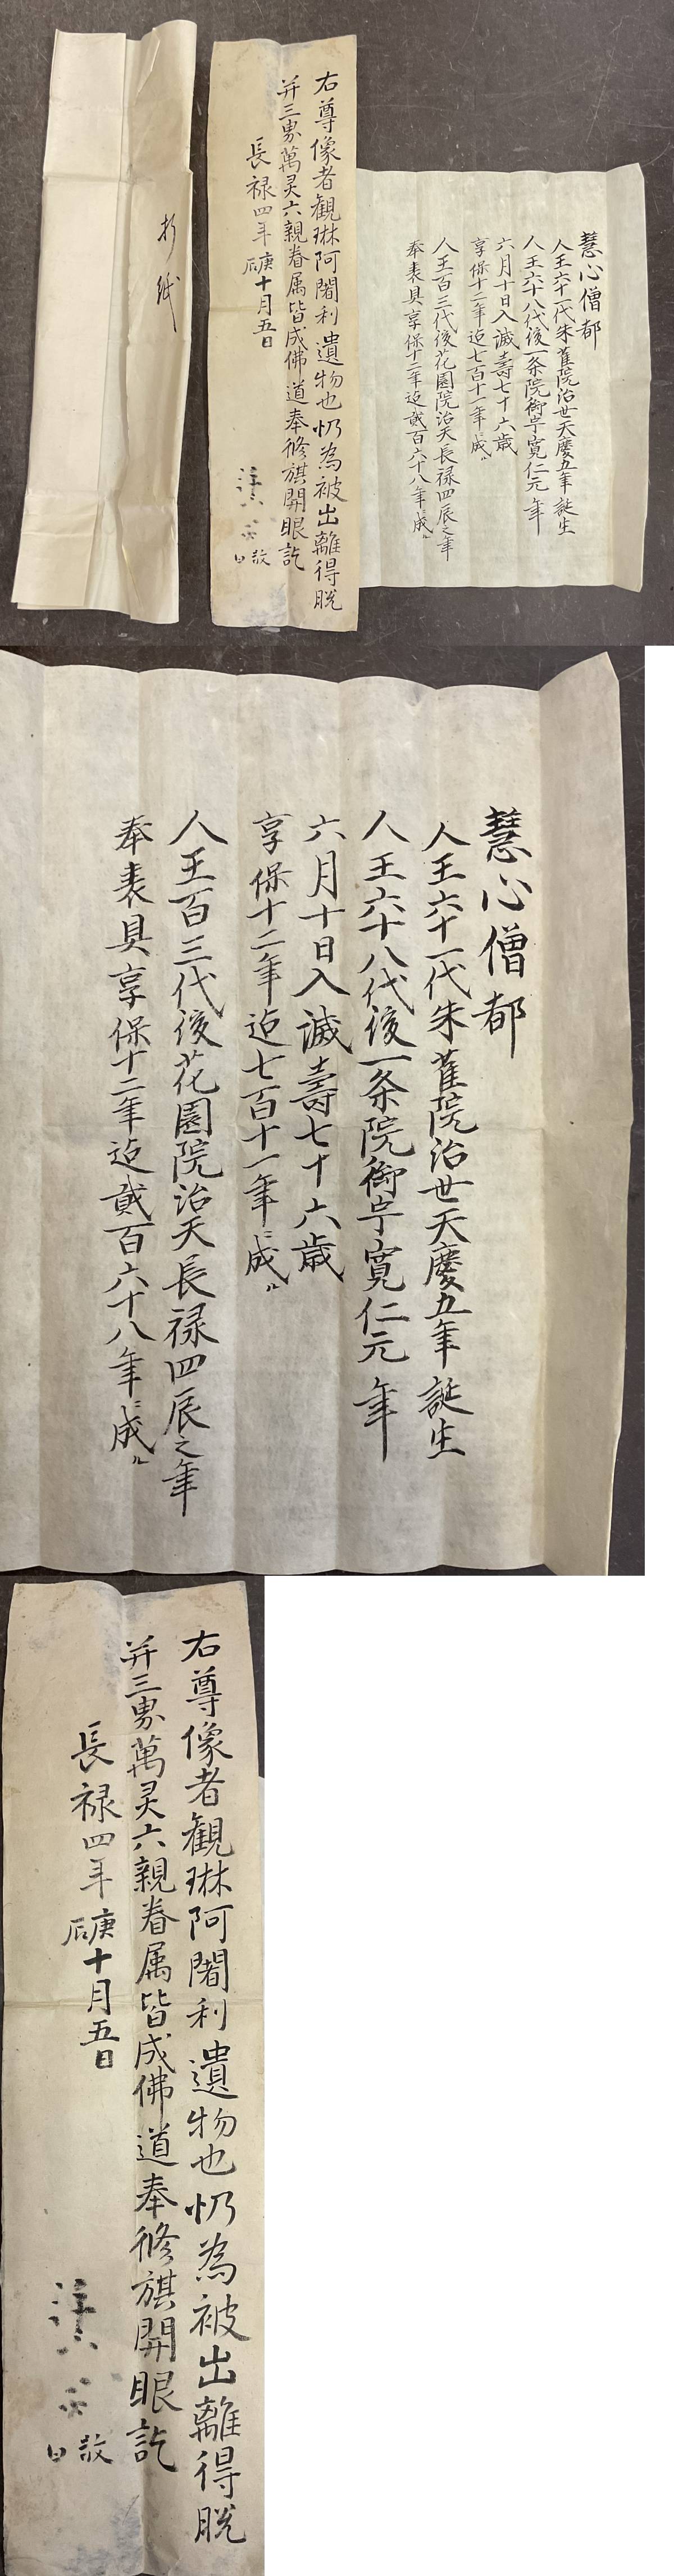 慧心僧都
人王六十一代朱雀院治世天慶五年誕生
人王六十八代後一条院御宇寛仁元年
六月十日入滅壽七十六歳
享保十二年迠七百十一年ニ成ル
人王百三代後花園院治天長禄四辰之年
奉表具享保十二年迠貮百六十八年ニ成ル
右尊像者観琳阿闍利遺物也仍為被出離得脱
并三界萬灵六親眷属皆成佛道奉修旗開眼訖
長禄四年庚辰十月五日
敬白
折紙
慧心僧都
人王六十一代朱雀院治世天慶五年誕生
人王六十八代後一条院御宇寛仁元年
六月十日入滅壽七十六歳
享保十二年迠七百十一年ニ成ル
人王百三代後花園院治天長禄四辰之年
奉表具享保十二年迠貮百六十八年ニ成ル
右尊像者観琳阿闍利遺物也仍為被出離得脱
并三界萬灵六親眷属皆成佛道奉修旗開眼訖
長禄四年庚辰十月五日
敬白